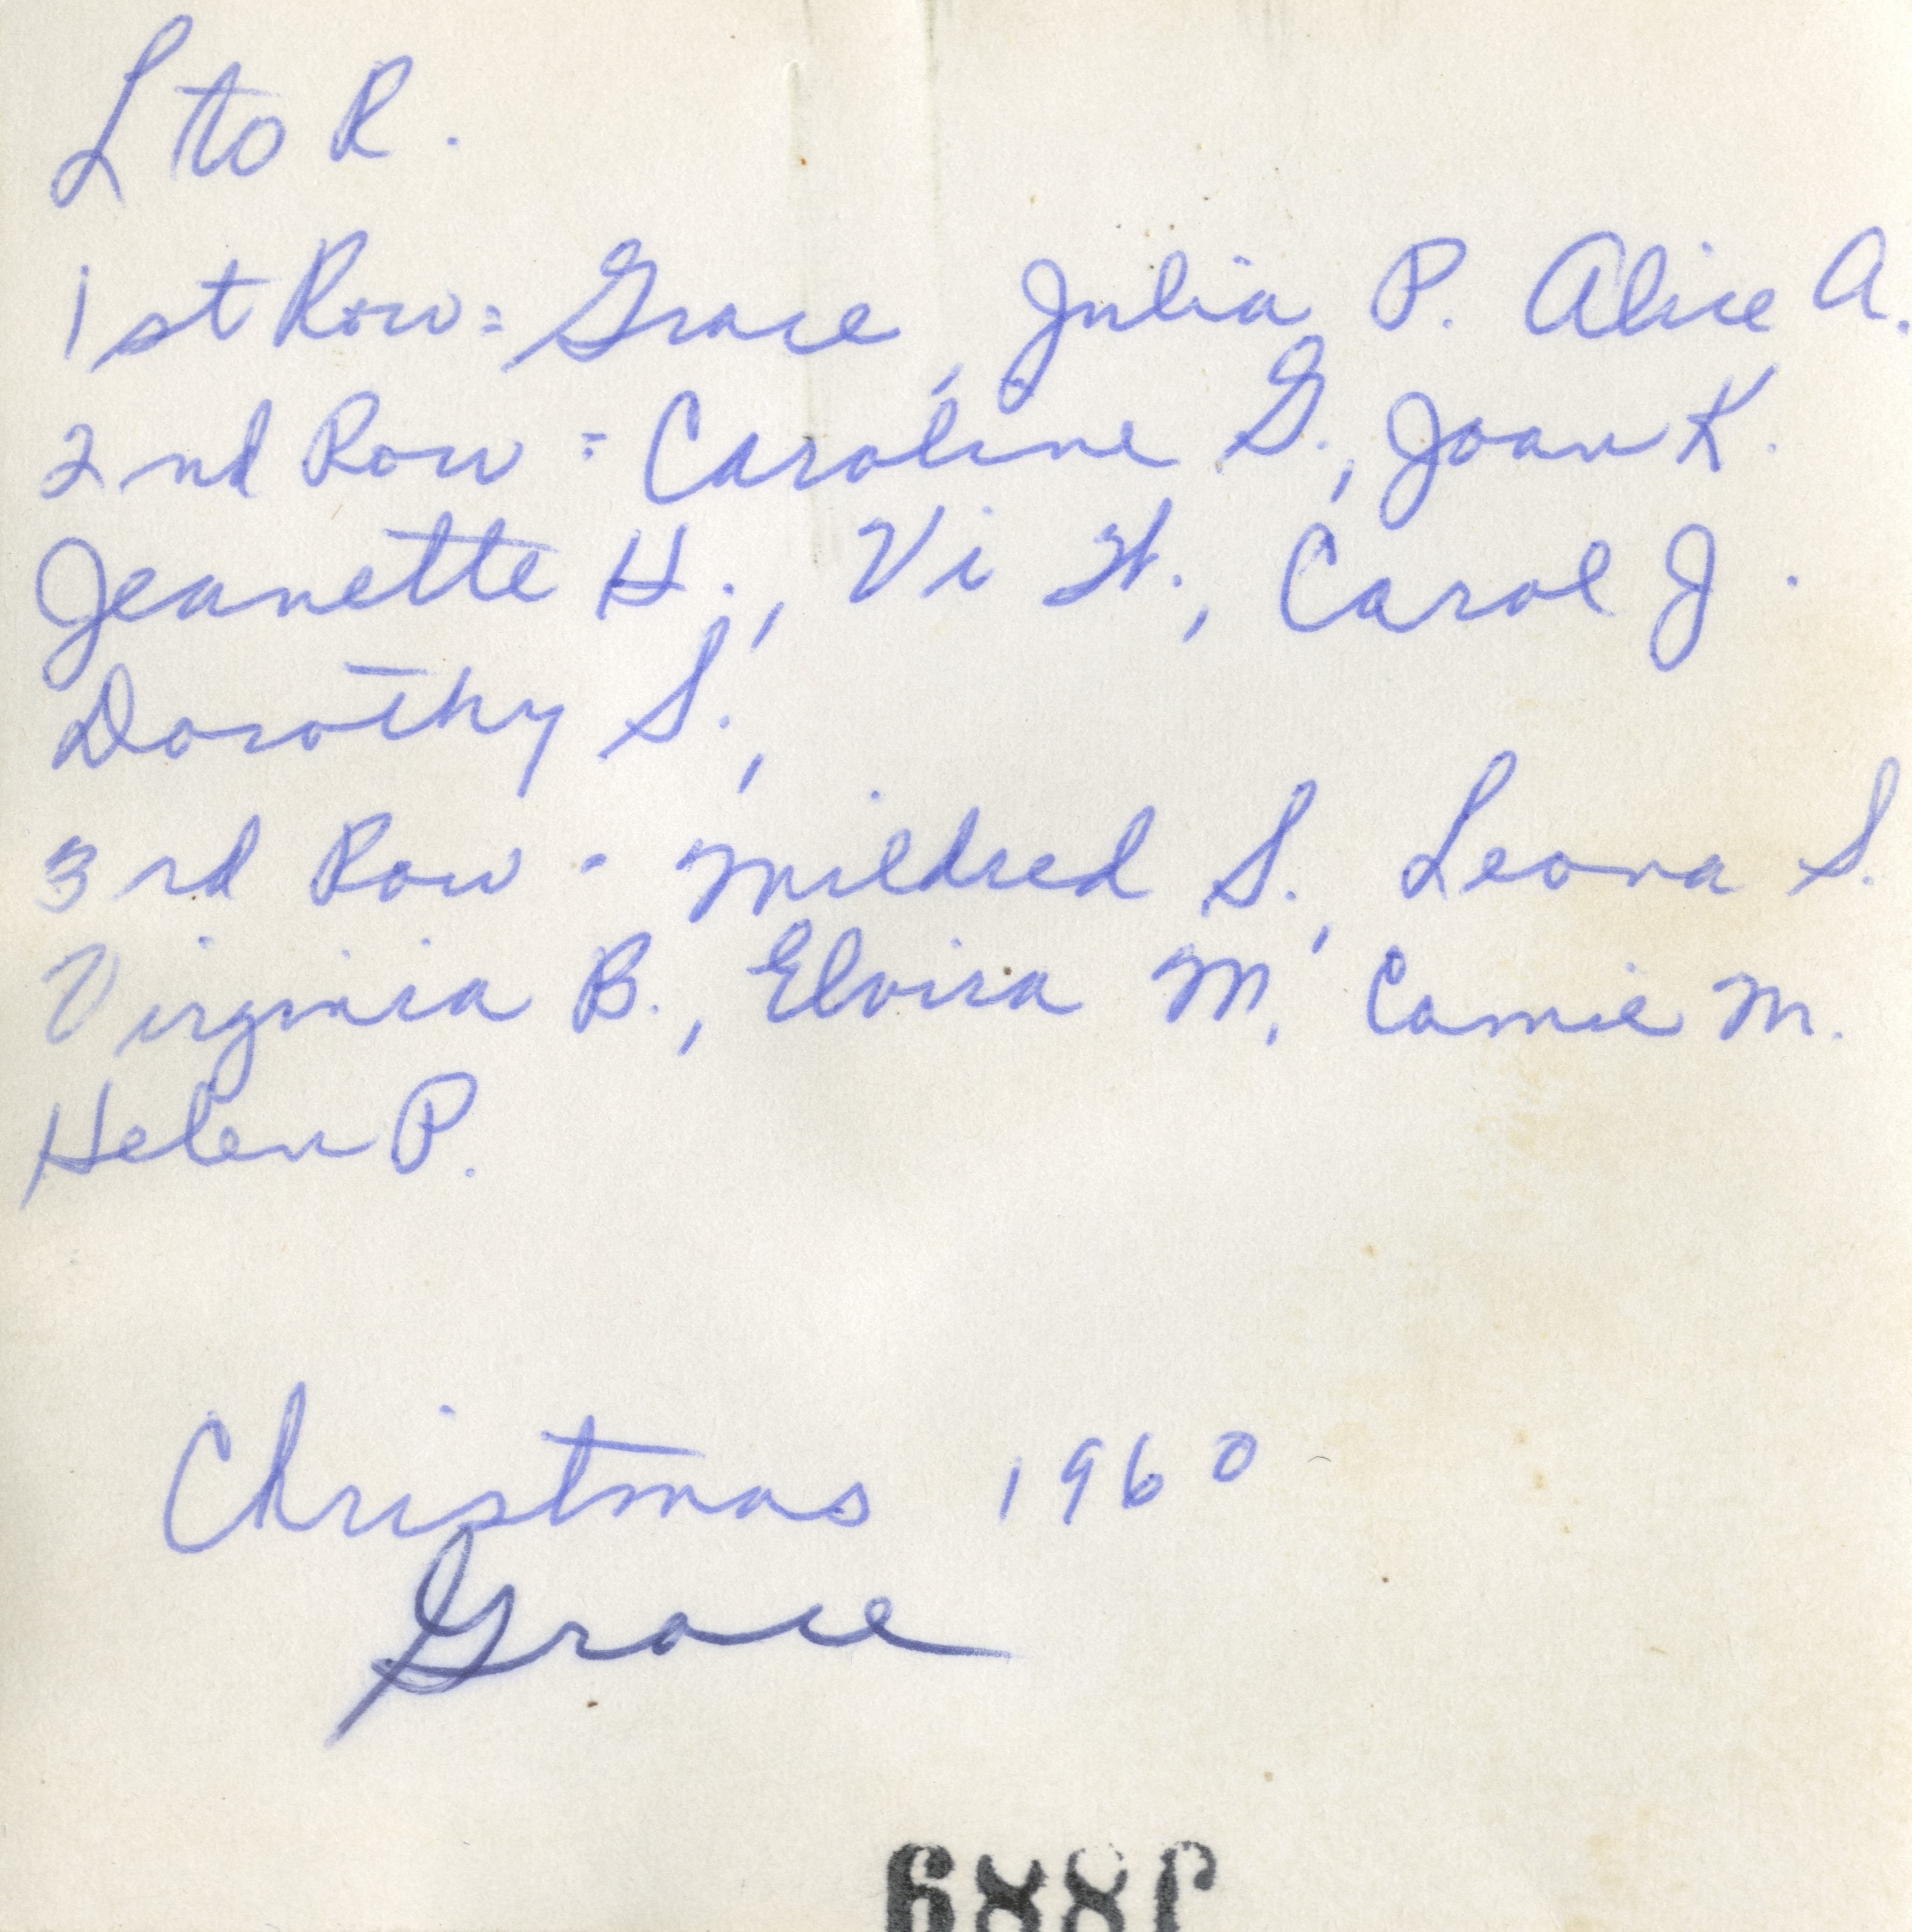 L to R.
1st Row: Grace, Julia P. Alice A.
2nd Row: Caroline G., Joan K.
Jeanette H., Vi H., Carol J.
Dorothy S.,
3rd Row - Mildred S., Leona S.
Virginia B., Elvira M., Camie M.
Helen P.
Christmas 1960
Grace